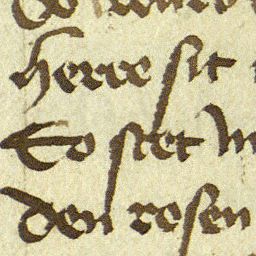 herre sit
Eo stet in
den rosen